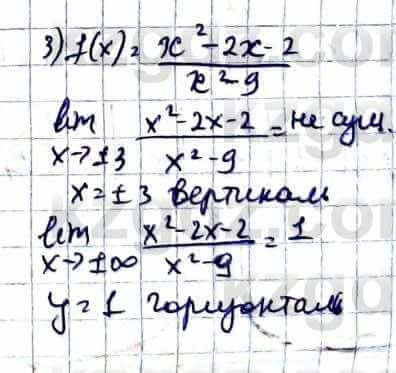 3) f(x) = x² - 2x - 2 / x² - 9
lim x→±3 x² - 2x - 2 / x² - 9 = не сущ.
x = ±3 вертикаль
lim x→±∞ x² - 2x - 2 / x² - 9 = 1
y = 1 горизонталь